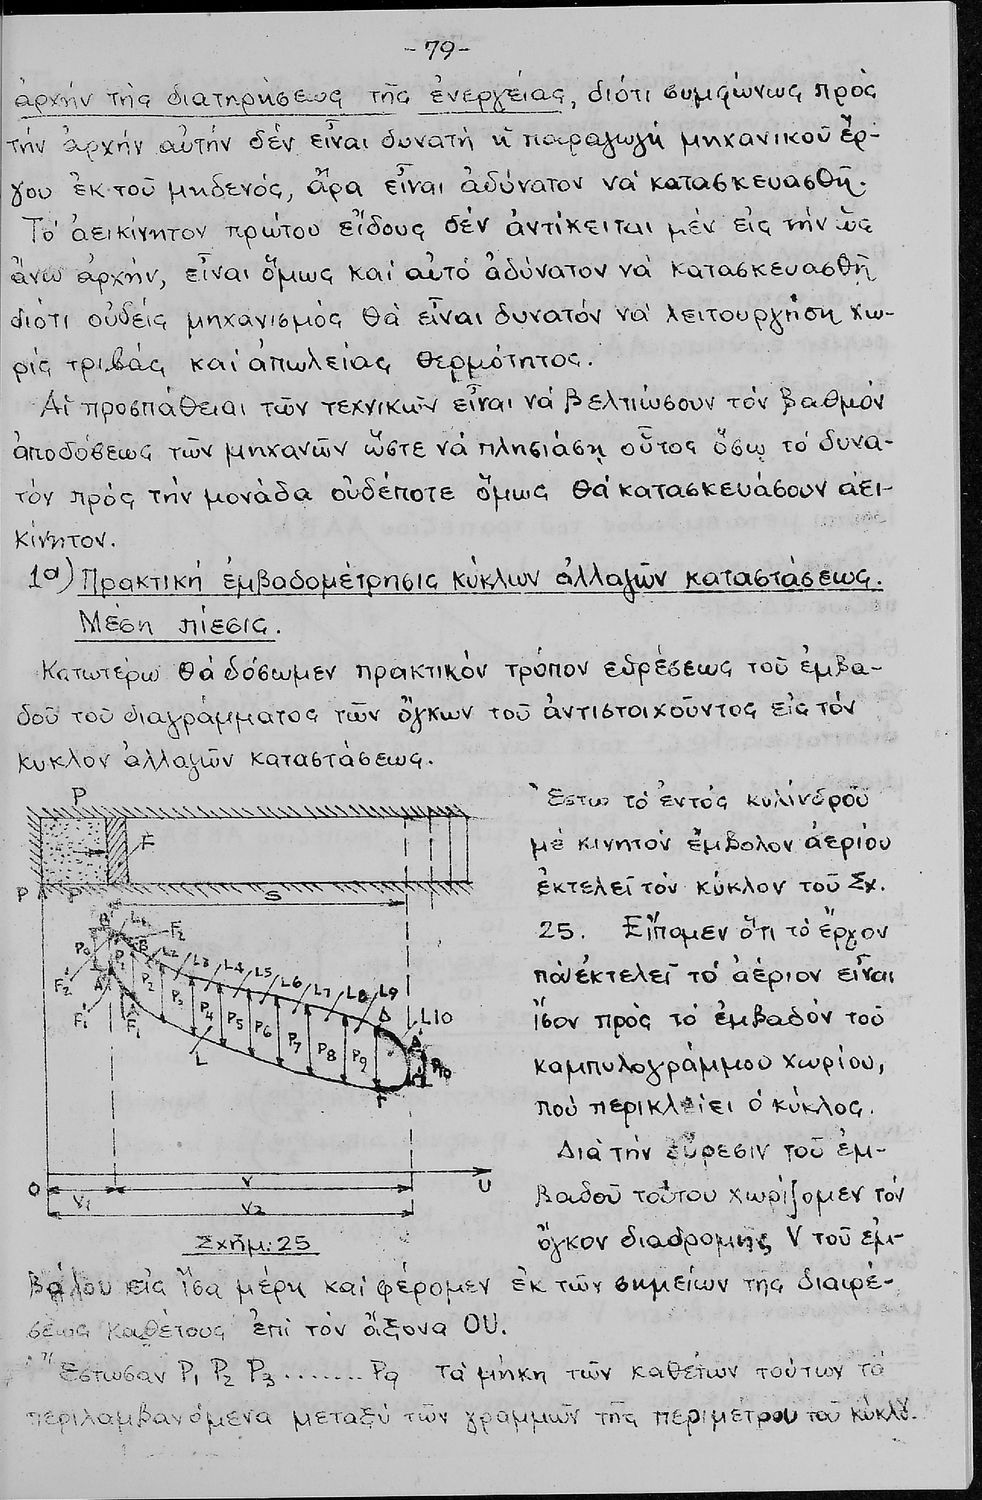 -79-
ἀρχήν τῆς διατηρήσεως τῆς ἐνεργείας, διότι συμφώνως πρός
τήν ἀρχήν αὐτήν δέν εἶναι δυνατή ἡ παραγωγή μηχανικοῦ ἔρ-
γου ἐκ τοῦ μηδενός, ἄρα εἶναι ἀδύνατον νά κατασκευασθῆ.
Τό ἀεικίνητον πρώτου εἴδους δέν ἀντίκειται μέν εἰς τήν ὡς
ἄνω ἀρχήν, εἶναι ὅμως καί αὐτό ἀδύνατον νά κατασκευασθῆ
διότι οὐδείς μηχανισμός θά εἶναι δυνατόν νά λειτουργήση χω-
ρίς τριβάς καί ἀπωλείας θερμότητος.
Αἱ προσπάθειαι τῶν τεχνικῶν εἶναι νά βελτιώσουν τόν βαθμόν
ἀποδόσεως τῶν μηχανῶν ὥστε νά πλησιάση οὗτος ὅσῳ τό δυνα-
τόν πρός τήν μονάδα οὐδέποτε ὅμως θά κατασκευάσουν ἀει-
κίνητον.
1α) Πρακτική ἐμβαδομέτρησις κύκλων ἀλλαγῶν καταστάσεως.
Μέση πίεσις.
Κατωτέρω θά δόσωμεν πρακτικόν τρόπον εὑρέσεως τοῦ ἐμβα-
δοῦ τοῦ διαγράμματος τῶν ὄγκων τοῦ ἀντιστοιχοῦντος εἰς τόν
κύκλον ἀλλαγῶν καταστάσεως.
P
F
P
P
S
B' L1
F2
P0 P1 B L2 L3 L4 L5 L6 L7 L8 L9
F2' P2 P3 P4 P5 P6 P7 P8 P9 Δ L10
A' A F1' F1 L Γ P10
O V1 V U
V2
Σχῆμ: 25
Ἔστω τό ἐντός κυλίνδρου
μέ κινητόν ἔμβολον ἀερίου
ἐκτελεῖ τόν κύκλον τοῦ Σχ.
25. Εἴπομεν ὅτι τό ἔργον
πού ἐκτελεῖ τό ἀέριον εἶναι
ἴσον πρός τό ἐμβαδόν τοῦ
καμπυλογράμμου χωρίου,
πού περικλείει ὁ κύκλος.
Διά τήν εὕρεσιν τοῦ ἐμ-
βαδοῦ τούτου χωρίζομεν τόν
ὄγκον διαδρομῆς V τοῦ ἐμ-
βόλου εἰς ἴσα μέρη καί φέρομεν ἐκ τῶν σημείων τῆς διαιρέ-
σεως καθέτους ἐπί τόν ἄξονα OU.
Ἔστωσαν P1 P2 P3 ....... P9 τά μήκη τῶν καθέτων τούτων τά
περιλαμβανόμενα μεταξύ τῶν γραμμῶν τῆς περιμέτρου τοῦ κύκλου.